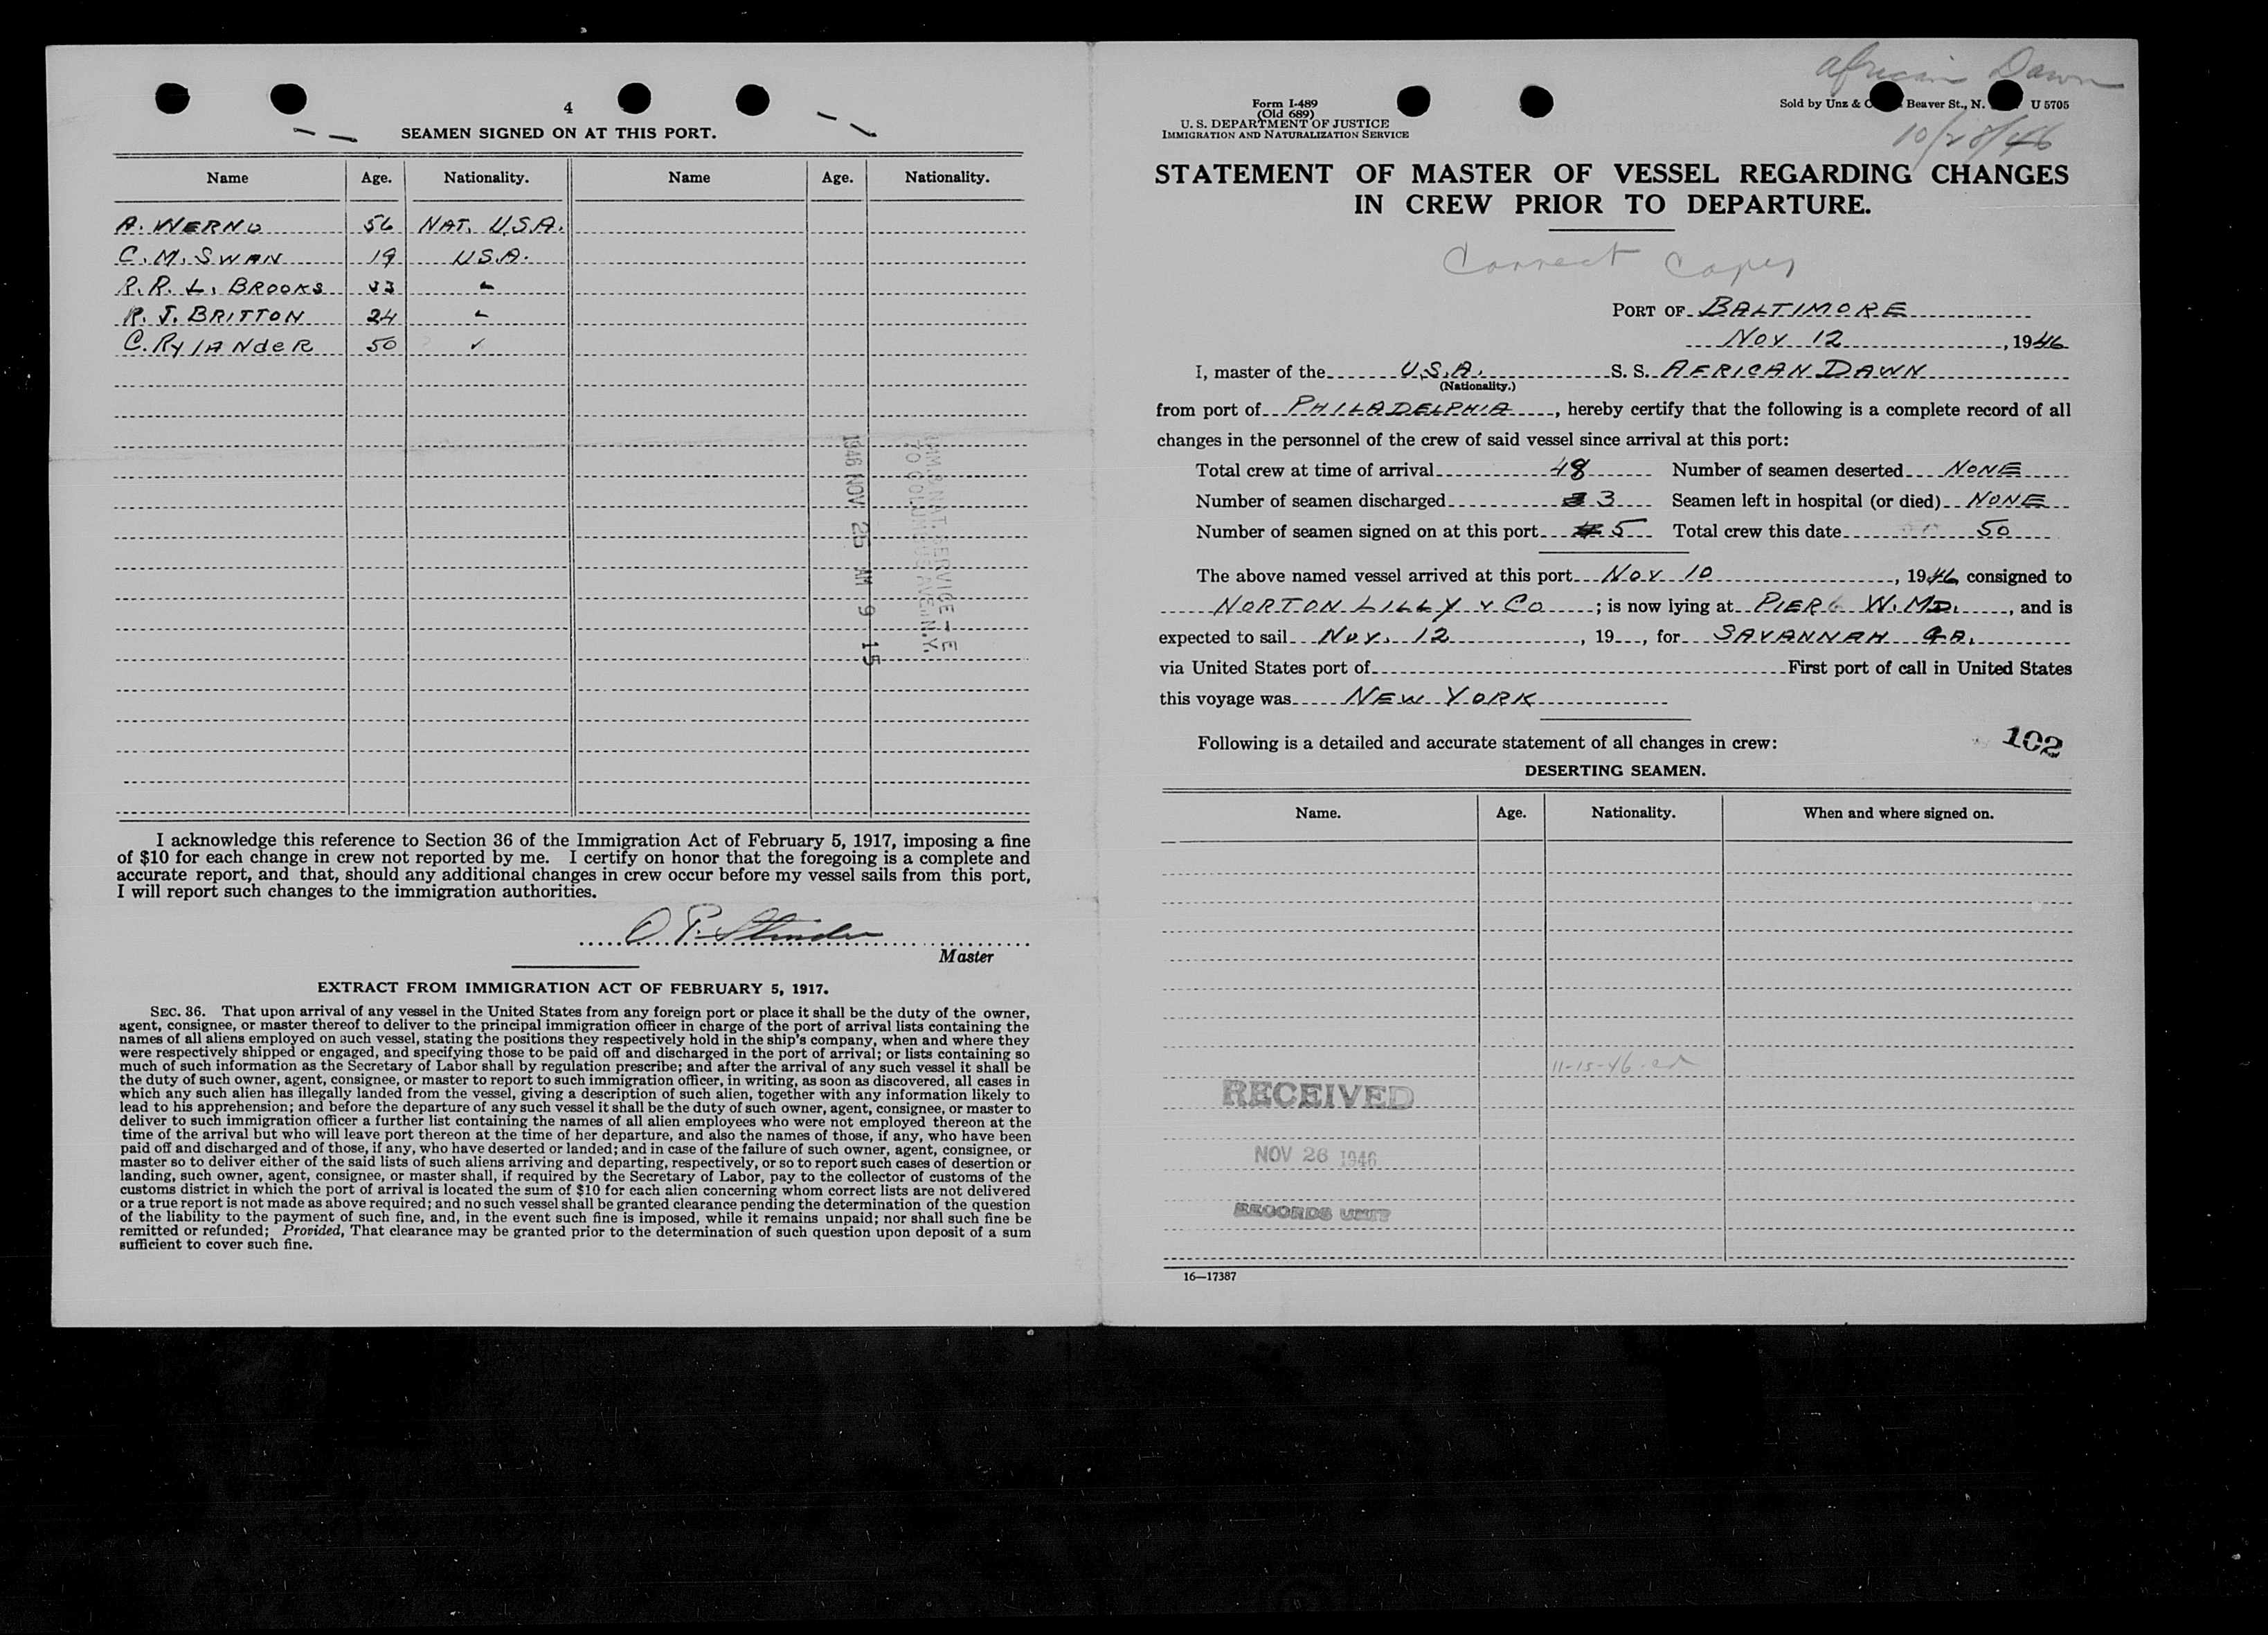 4
SEAMEN SIGNED ON AT THIS PORT.
Name Age. Nationality. Name Age. Nationality.
A. WERNO 56 NAT. U.S.A.
C. M. SWAN 19 U.S.A.
R. R. L. BROOKS 33 "
R. J. BRITTON 24 "
C. RYLANdER 50 ✓
IMM. & NAT. SERVICE - E
70 COLUMBUS AVE. N.Y.
1946 NOV 25 AM 9 15
I acknowledge this reference to Section 36 of the Immigration Act of February 5, 1917, imposing a fine
of $10 for each change in crew not reported by me. I certify on honor that the foregoing is a complete and
accurate report, and that, should any additional changes in crew occur before my vessel sails from this port,
I will report such changes to the immigration authorities.
O P.
Master
EXTRACT FROM IMMIGRATION ACT OF FEBRUARY 5, 1917.
SEC. 36. That upon arrival of any vessel in the United States from any foreign port or place it shall be the duty of the owner,
agent, consignee, or master thereof to deliver to the principal immigration officer in charge of the port of arrival lists containing the
names of all aliens employed on such vessel, stating the positions they respectively hold in the ship's company, when and where they
were respectively shipped or engaged, and specifying those to be paid off and discharged in the port of arrival; or lists containing so
much of such information as the Secretary of Labor shall by regulation prescribe; and after the arrival of any such vessel it shall be
the duty of such owner, agent, consignee, or master to report to such immigration officer, in writing, as soon as discovered, all cases in
which any such alien has illegally landed from the vessel, giving a description of such alien, together with any information likely to
lead to his apprehension; and before the departure of any such vessel it shall be the duty of such owner, agent, consignee, or master to
deliver to such immigration officer a further list containing the names of all alien employees who were not employed thereon at the
time of the arrival but who will leave port thereon at the time of her departure, and also the names of those, if any, who have been
paid off and discharged and of those, if any, who have deserted or landed; and in case of the failure of such owner, agent, consignee, or
master so to deliver either of the said lists of such aliens arriving and departing, respectively, or so to report such cases of desertion or
landing, such owner, agent, consignee, or master shall, if required by the Secretary of Labor, pay to the collector of customs of the
customs district in which the port of arrival is located the sum of $10 for each alien concerning whom correct lists are not delivered
or a true report is not made as above required; and no such vessel shall be granted clearance pending the determination of the question
of the liability to the payment of such fine, and, in the event such fine is imposed, while it remains unpaid; nor shall such fine be
remitted or refunded; Provided, That clearance may be granted prior to the determination of such question upon deposit of a sum
sufficient to cover such fine.
African Dawn
Form I-489
(Old 689)
U. S. DEPARTMENT OF JUSTICE
IMMIGRATION AND NATURALIZATION SERVICE
Sold by Unz & C Beaver St., N. U 5705
10/28/46
STATEMENT OF MASTER OF VESSEL REGARDING CHANGES
IN CREW PRIOR TO DEPARTURE.
Correct Copy
PORT OF BALTIMORE
Nov 12, 1946
I, master of the U.S.A. S. S. AFRICAN DAWN
(Nationality.)
from port of PHILADELPHIA, hereby certify that the following is a complete record of all
changes in the personnel of the crew of said vessel since arrival at this port:
Total crew at time of arrival 48 Number of seamen deserted NONE
Number of seamen discharged 3 Seamen left in hospital (or died) NONE
Number of seamen signed on at this port 5 Total crew this date 50
The above named vessel arrived at this port Nov 10, 1946 consigned to
NORTON LILLY & Co; is now lying at PIER 6 W. MD., and is
expected to sail Nov. 12, 19 , for SAVANNAH GA.
via United States port of First port of call in United States
this voyage was NEW YORK
Following is a detailed and accurate statement of all changes in crew:
102
DESERTING SEAMEN.
Name. Age. Nationality. When and where signed on.
11-15-46
RECEIVED
NOV 26 1946
RECORDS UNIT
16—17387